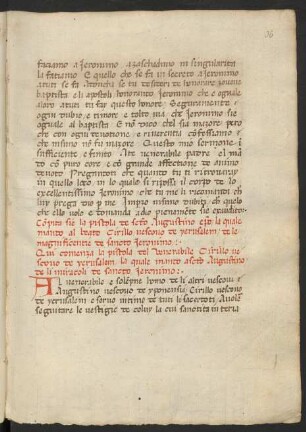 36
faciamo a Jeronimo a ciaschuduno in singularita
la faciamo E quello che se fa in secreto a Jeronimo
a tuti se fa Adonchi se tu desideri de honorare
baptista e li apostoli honoranto Jeronimo che e oguale
a loro a tuti tu fay questo honore Seguramente e
ogni dubio e timore e tolto via che Jeronimo sia
oguale al baptista E no dico chel sia maiore pero
che con ogni devotione e riverentia confessiemo
che nisuno no fu maiore Questo mio sermone i
sufficiente e finito A te venerabile padre el ma
to co puro core e co grande affectione de animo
devoto Pregandoti che quanto tu ti ritrovaray in
quello loco in lo quale si ripossi el corpo de lo
excellentissimo Jeronimo che tu me li racomendi che
luy prega dio p me Impio nisuno dubiti che quello
che ello vole e domanda a dio pienamente sia exaudito
Compita sie la pistola de scto Augustino epo la quale
mando al beato Cirillo vescovo de yerusalem de le
magnificentie de sancto Jeronimo
Qui comenza la pistola del venerabile Cirillo ve
scovo de yerusalem la quale mando a scto Augustino
de li miracoli de sancto Jeronimo
Al venerabile e solenne homo de li altri vescovi
Augustino vescovo de yponensis Cirillo vescovo
de yerusalem e servo ultimo de tuti li sacerdoti Avolere
seguitare le vestigie de coluy la cui sanctita in terra